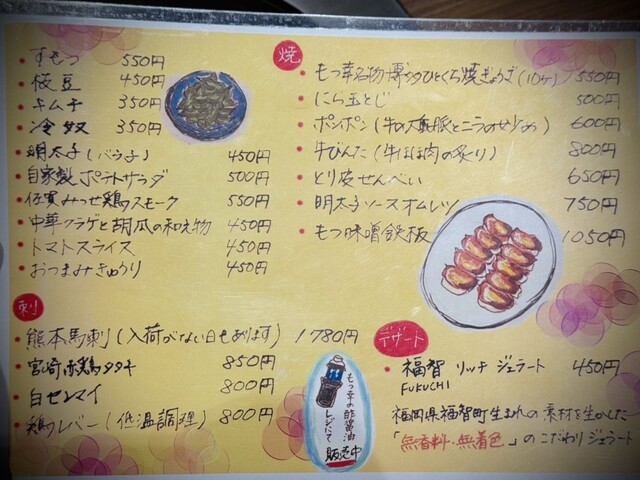 すもつ 550円
枝豆 450円
キムチ 350円
冷奴 350円
明太子(バラ子) 450円
自家製ポテトサラダ 500円
佐賀みつせ鶏スモーク 550円
中華クラゲと胡瓜の和え物 450円
トマトスライス 450円
おつまみきゅうり 450円
刺
熊本馬刺(入荷がない日もあります) 1780円
宮崎赤鶏タタキ 850円
白センマイ 800円
鶏レバー(低温調理) 800円
焼
もつ幸名物博多ひとくち焼ぎょうざ(10ケ) 550円
にら玉とじ 500円
ポンポン(牛の大動脈とニラの炒め) 600円
牛びんた(牛ほほ肉の炙り) 800円
とり皮せんべい 650円
明太子ソースオムレツ 750円
もつ味噌鉄板 1050円
もつ幸の酢醤油
レジにて
販売中
デザート
福智 リッチ ジェラート 450円
FUKUCHI
福岡県福智町生まれの素材を生かした
「無香料・無着色」のこだわりジェラート